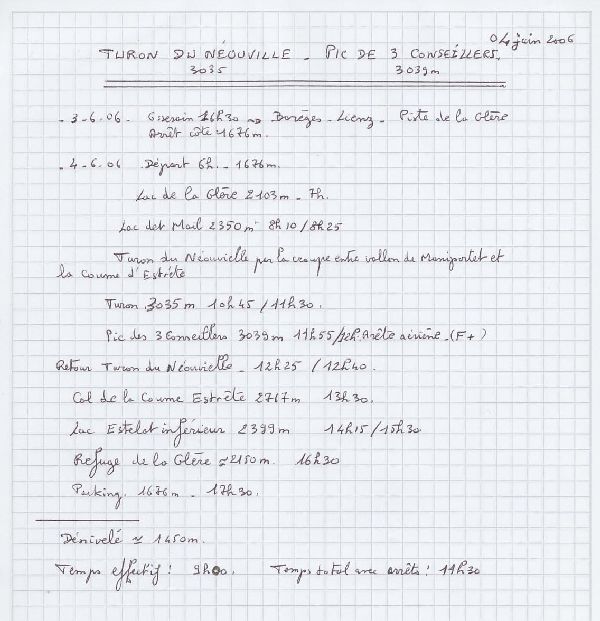 04 juin 2006
TURON DU NÉOUVILLE - PIC DE 3 CONSEILLERS.
3035 3039m
- 3-6.06 - Gserain 16h30 → Barèges - Lienz - Piste de la Glère
Arrêt côte 1676m.
- 4-6.06 Départ 6h. - 1676m.
Lac de la Glère 2103m - 7h.
Lac det Mail 2350m 8h10/8h25
Turon du Néouvielle par la croupe entre vallon de Maniportet et
la Coume d'Estrète
Turon 3035m 10h45/11h30.
Pic des 3 Conseillers 3039m 11h55/12h. Arête aérienne. (F+)
Retour Turon du Néouvielle - 12h25 / 12h40.
Col de la Coume Estrète 2767m 13h30.
Lac Estelat inférieur 2399m 14h15/15h30
Refuge de la Glère ≃ 2150m. 16h30
Parking. 1676m - 17h30.
Dénivelé ≃ 1450m.
Temps effectif : 9h00. Temps total avec arrêts : 11h30